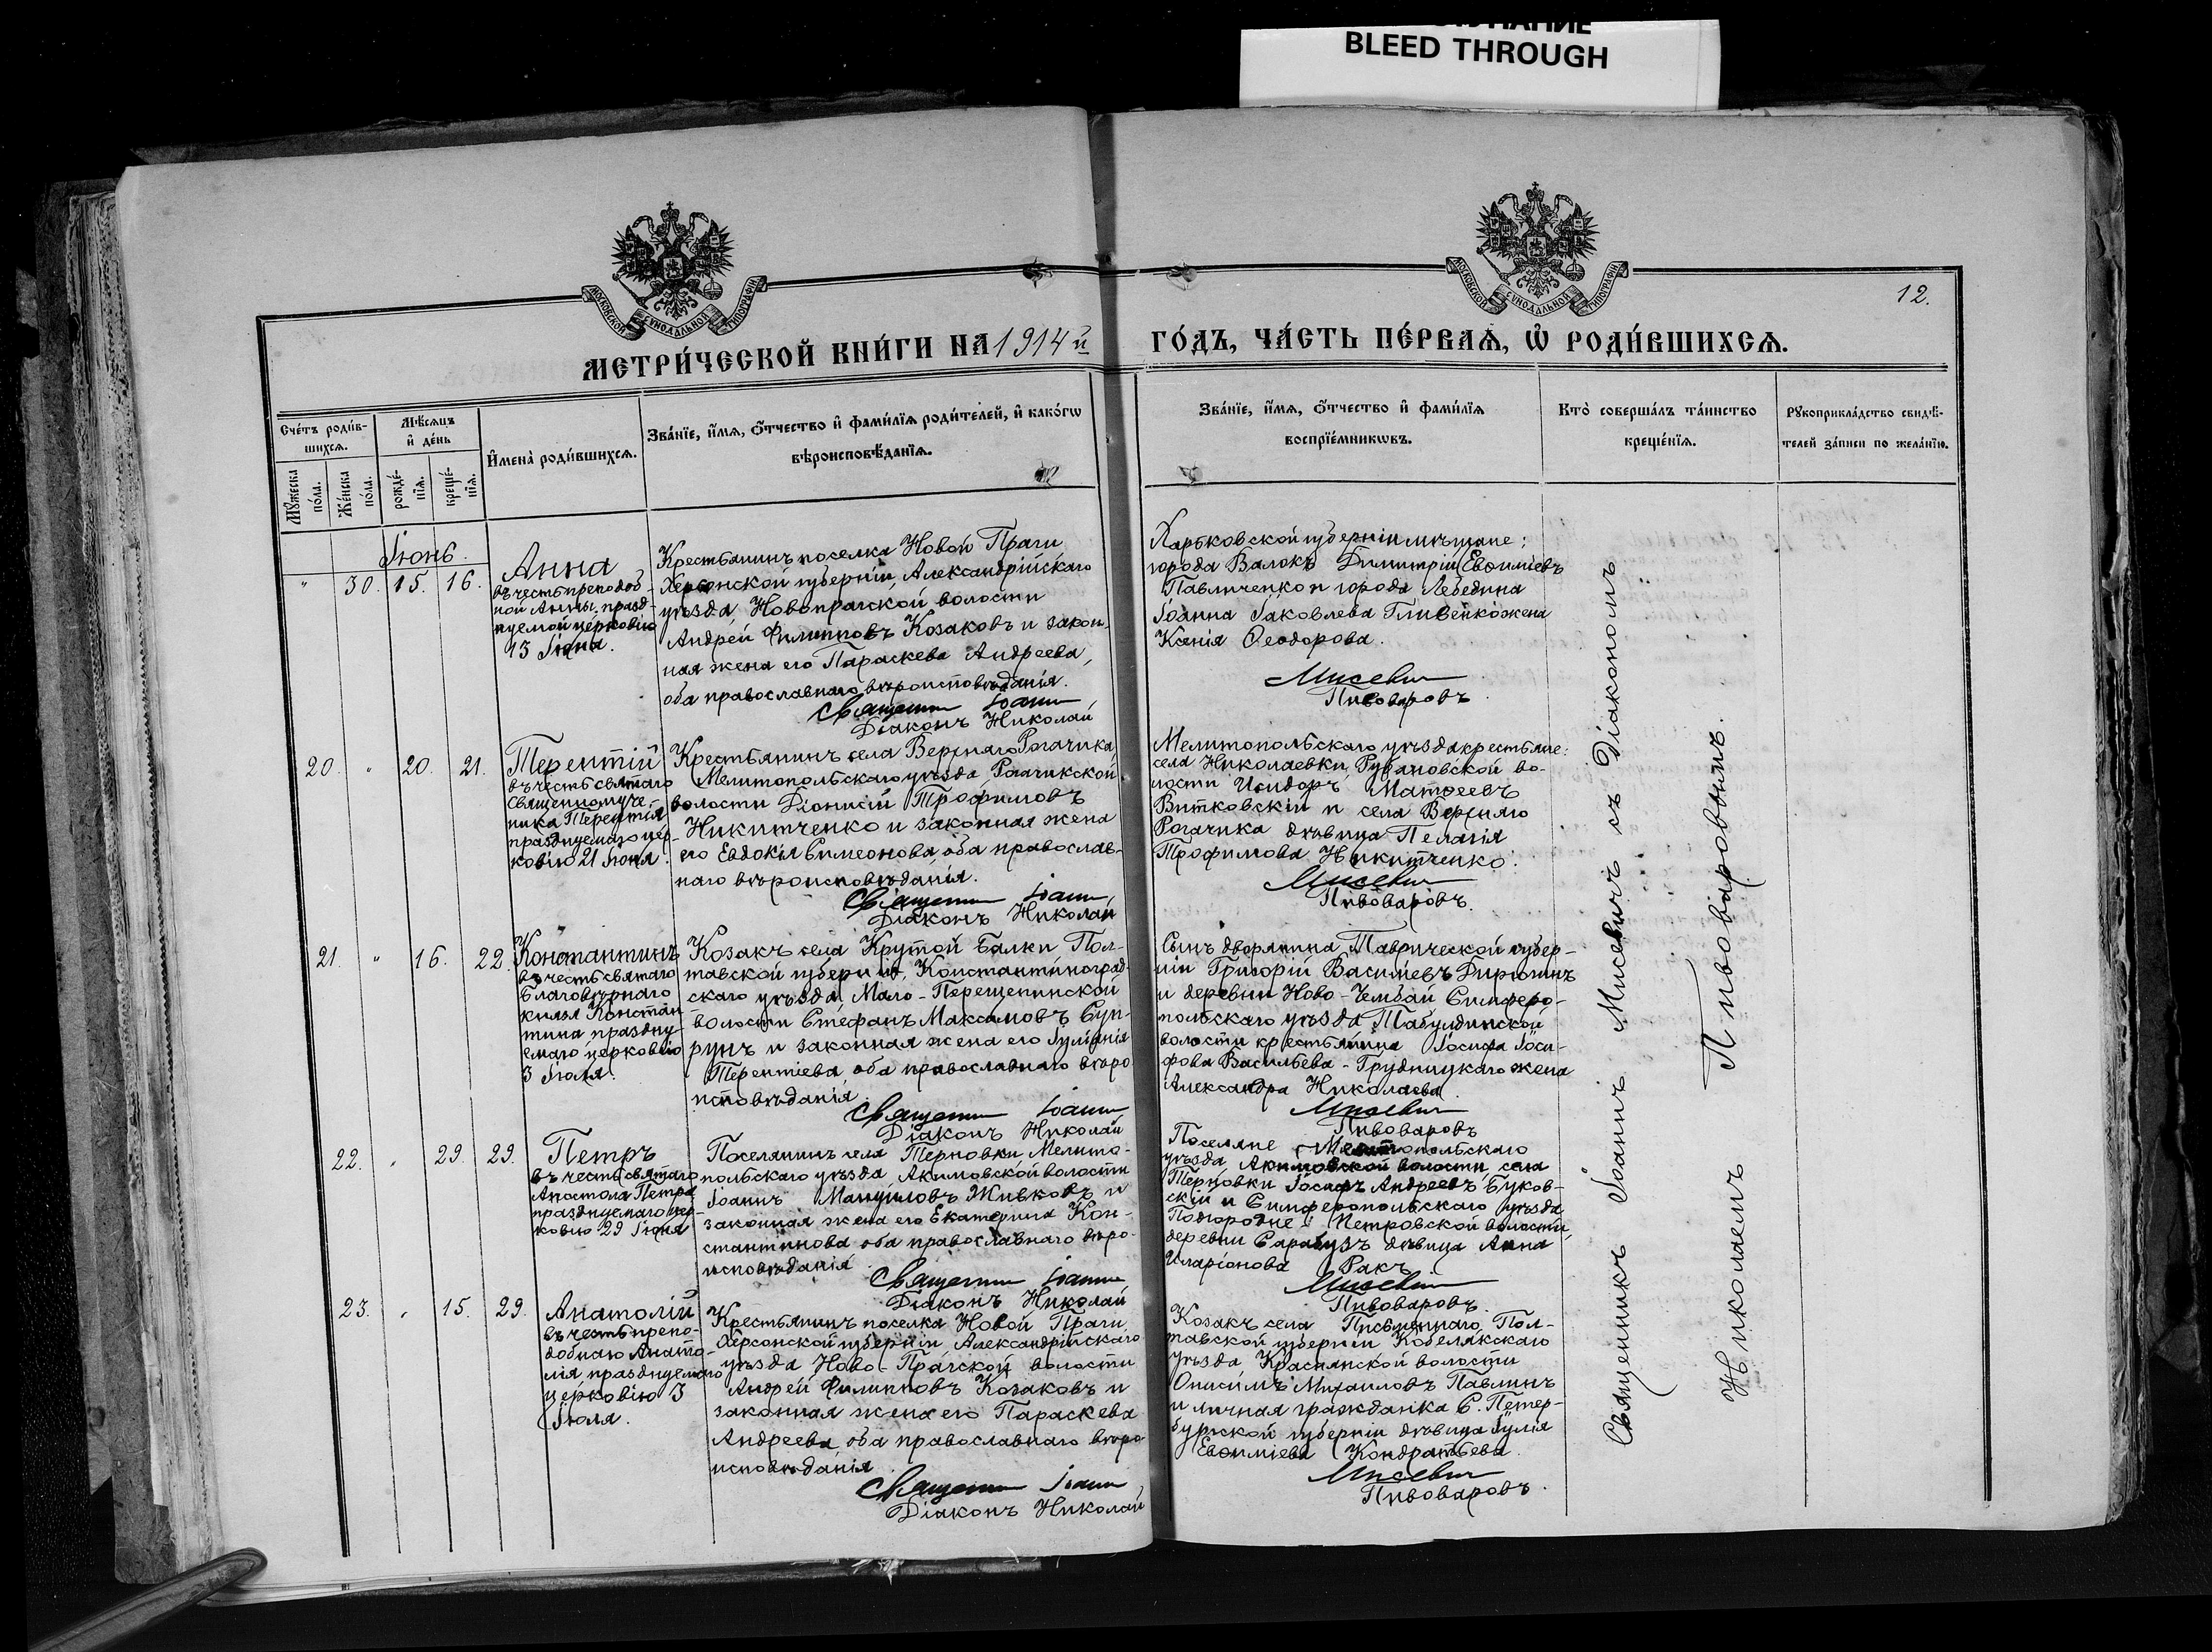 BLEED THROUGH
МОСКОВСКОЙ СѴНОДАЛЬНОЙ ТИПОГРАФІИ
МОСКОВСКОЙ СѴНОДАЛЬНОЙ ТИПОГРАФІИ
12.
МЕТРИ́ЧЕСКОЙ КНИ́ГИ НА 1914й ГО́ДЪ, ЧА́СТЬ ПЕ́РВАѦ, Ѡ҆ РОДИ́ВШИХСѦ.
Сче́тъ роди́в-
шихсѧ.
Мѣ́сѧцъ
и҆ де́нь
Мꙋ́жеска
по́ла.
Же́нска
по́ла.
рожде́-
нїѧ.
креще́-
нїѧ.
И҆мена̀ роди́вшихсѧ.
Зва́нїе, и҆́мѧ, ѻ҆́тчество и҆ фами́лїѧ роди́телей, и҆ како́гѡ
вѣроисповѣ́данїѧ.
Зва́нїе, и҆́мѧ, ѻ҆́тчество и҆ фами́лїѧ
воспрїе́мникѡвъ.
Кто̀ соверша́лъ та́инство
креще́нїѧ.
Рꙋкоприкла́дство свидѣ́-
телей за́писи по жела́нїю.
Іюнь.
" 30. 15. 16.
Анна
въ честь преподоб-
ной Анны, празд-
нуемой церковію
13 Іюня.
Крестьянинъ поселка Новой Праги
Херсонской губерніи, Александрійскаго
уѣзда, Новопрагской волости
Андрей Филипповъ Козаковъ и закон-
ная жена его Параскева Андреева,
оба православнаго вѣроисповѣданія.
Священникъ Іоаннъ
Діаконъ Николай
Харьковской губерніи мѣщане:
города Валокъ Димитрій Евѳиміевъ
Павличенко и города Лебедина
Іоанна Іаковлева Гливенко жена
Ксенія Ѳеодорова.
Мисевич
Пивоваровъ
20. " 20. 21.
Терентій
въ честь святаго
священномуче-
ника Терентія
празднуемаго цер-
ковію 21 Іюня.
Крестьянинъ села Верхняго Рогачика
Мелитопольскаго уѣзда, Рогачикской
волости Діонисій Трофимовъ
Никитченко и законная жена
его Евдокія Симеонова, оба православ-
наго вѣроисповѣданія.
Священникъ Іоаннъ
Діаконъ Николай
Мелитопольскаго уѣзда крестьяне:
села Николаевки, Рубановской во-
лости Исидоръ Матѳеевъ
Витковскій и села Верхняго
Рогачика дѣвица Пелагія
Трофимова Никитченко.
Мисевич
Пивоваровъ.
21. " 16. 22.
Константинъ
въ честь святаго
благовѣрнаго
князя Констан
тина праздну-
емаго церковію
3 Іюля.
Козакъ села Крутой Балки Пол-
тавской губерніи, Константиноград-
скаго уѣзда, Мало-Перещепинской
волости Стефанъ Максимовъ Суп-
рунъ и законная жена его Іуліанія
Терентіева, оба православнаго вѣро
исповѣданія.
Священникъ Іоаннъ
Діаконъ Николай
Сынъ дворянина Таврической губер-
ніи Григорій Василіевъ Бирюлинъ
и деревни Ново-Чембай Симферо-
польскаго уѣзда Табулдинской
волости крестьянина Іосифа Іоси-
фова Васильева-Грудницкаго жена
Александра Николаева.
Мисевич
Пивоваровъ
22. " 29. 29.
Петръ
въ честь святаго
Апостола Петра
празднуемаго цер-
ковію 29 Іюня
Поселянинъ села Терновки Мелито-
польскаго уѣзда, Акимовской волости
Іоаннъ Мануиловъ Живковъ и
законная жена его Екатерина Кон-
стантинова оба православнаго вѣро-
исповѣданія
Священникъ Іоаннъ
Діаконъ Николай
Поселяне: Мелитопольскаго
уѣзда, Акимовской волости, села
Терновки Іосифъ Андреевъ Буков-
скій и Симферопольскаго уѣзда,
Подгородне-Петровской волости,
деревни Сарабузъ дѣвица Анна
Иларіонова Ракъ
Мисевич
Пивоваровъ.
23. " 15. 29.
Анатолій
въ честь препо-
добнаго Анато-
лія, празднуемаго
церковію 3
Іюля.
Крестьянинъ поселка Новой Праги
Херсонской губерніи Александрійскаго
уѣзда Ново-Прагской волости
Андрей Филипповъ Козаковъ и
законная жена его Параскева
Андреева, оба православнаго вѣро
исповѣданія.
Священникъ Іоаннъ
Діаконъ Николай
Козакъ села Письменнаго Пол-
тавской губерніи Кобелякскаго
уѣзда Краснянской волости
Онисимъ Михаиловъ Павлинъ
и личная гражданка С. Петер-
бургской губерніи дѣвица Іулія
Евѳиміева Кондратьева.
Мисевич
Пивоваровъ.
Священникъ Іоаннъ Мисевичъ съ Діакономъ
Николаемъ Пивоваровымъ.